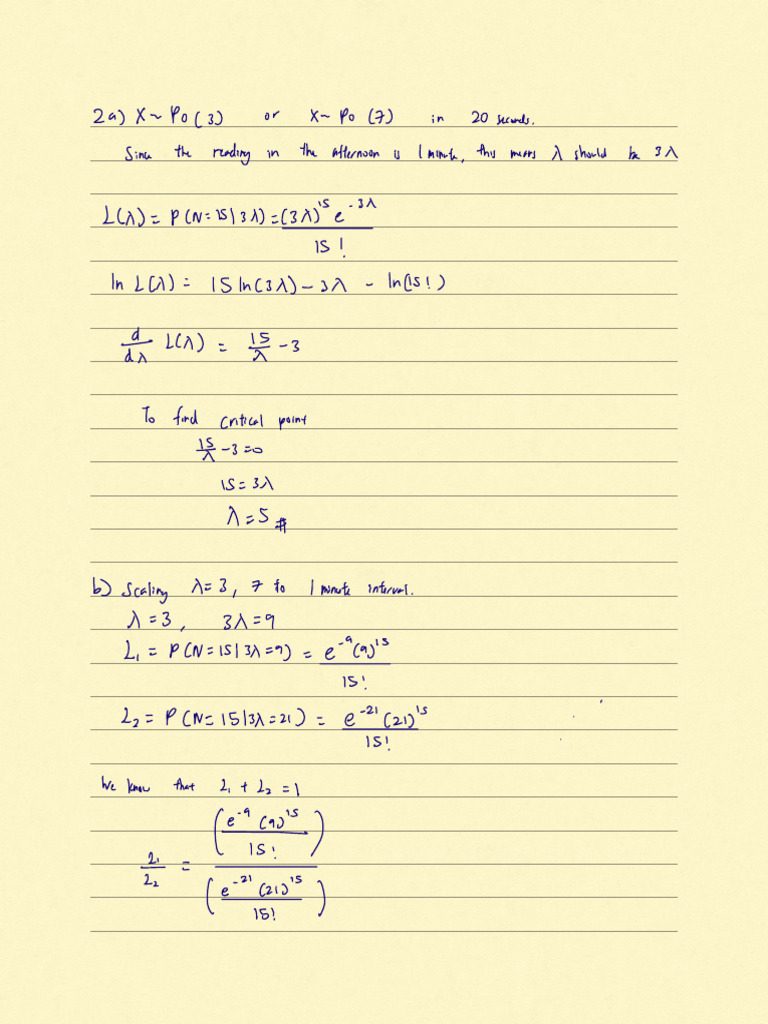 2a) X~ Po(3) or X~ Po (7) in 20 seconds.
Since the reading in the afternoon is 1 minute, this means λ should be 3λ
L(λ) = P(N=15|3λ) = (3λ)^15 e^-3λ / 15!
ln L(λ) = 15 ln(3λ) - 3λ - ln(15!)
d/dλ L(λ) = 15/λ - 3
To find critical point
15/λ - 3 = 0
15 = 3λ
λ = 5 #
b) Scaling λ=3, 7 to 1 minute interval.
λ = 3, 3λ = 9
L₁ = P(N=15|3λ=9) = e^-9 (9)^15 / 15!
L₂ = P(N=15|3λ=21) = e^-21 (21)^15 / 15!
We know that L₁ + L₂ = 1
L₁/L₂ = (e^-9 (9)^15 / 15!) / (e^-21 (21)^15 / 15!)